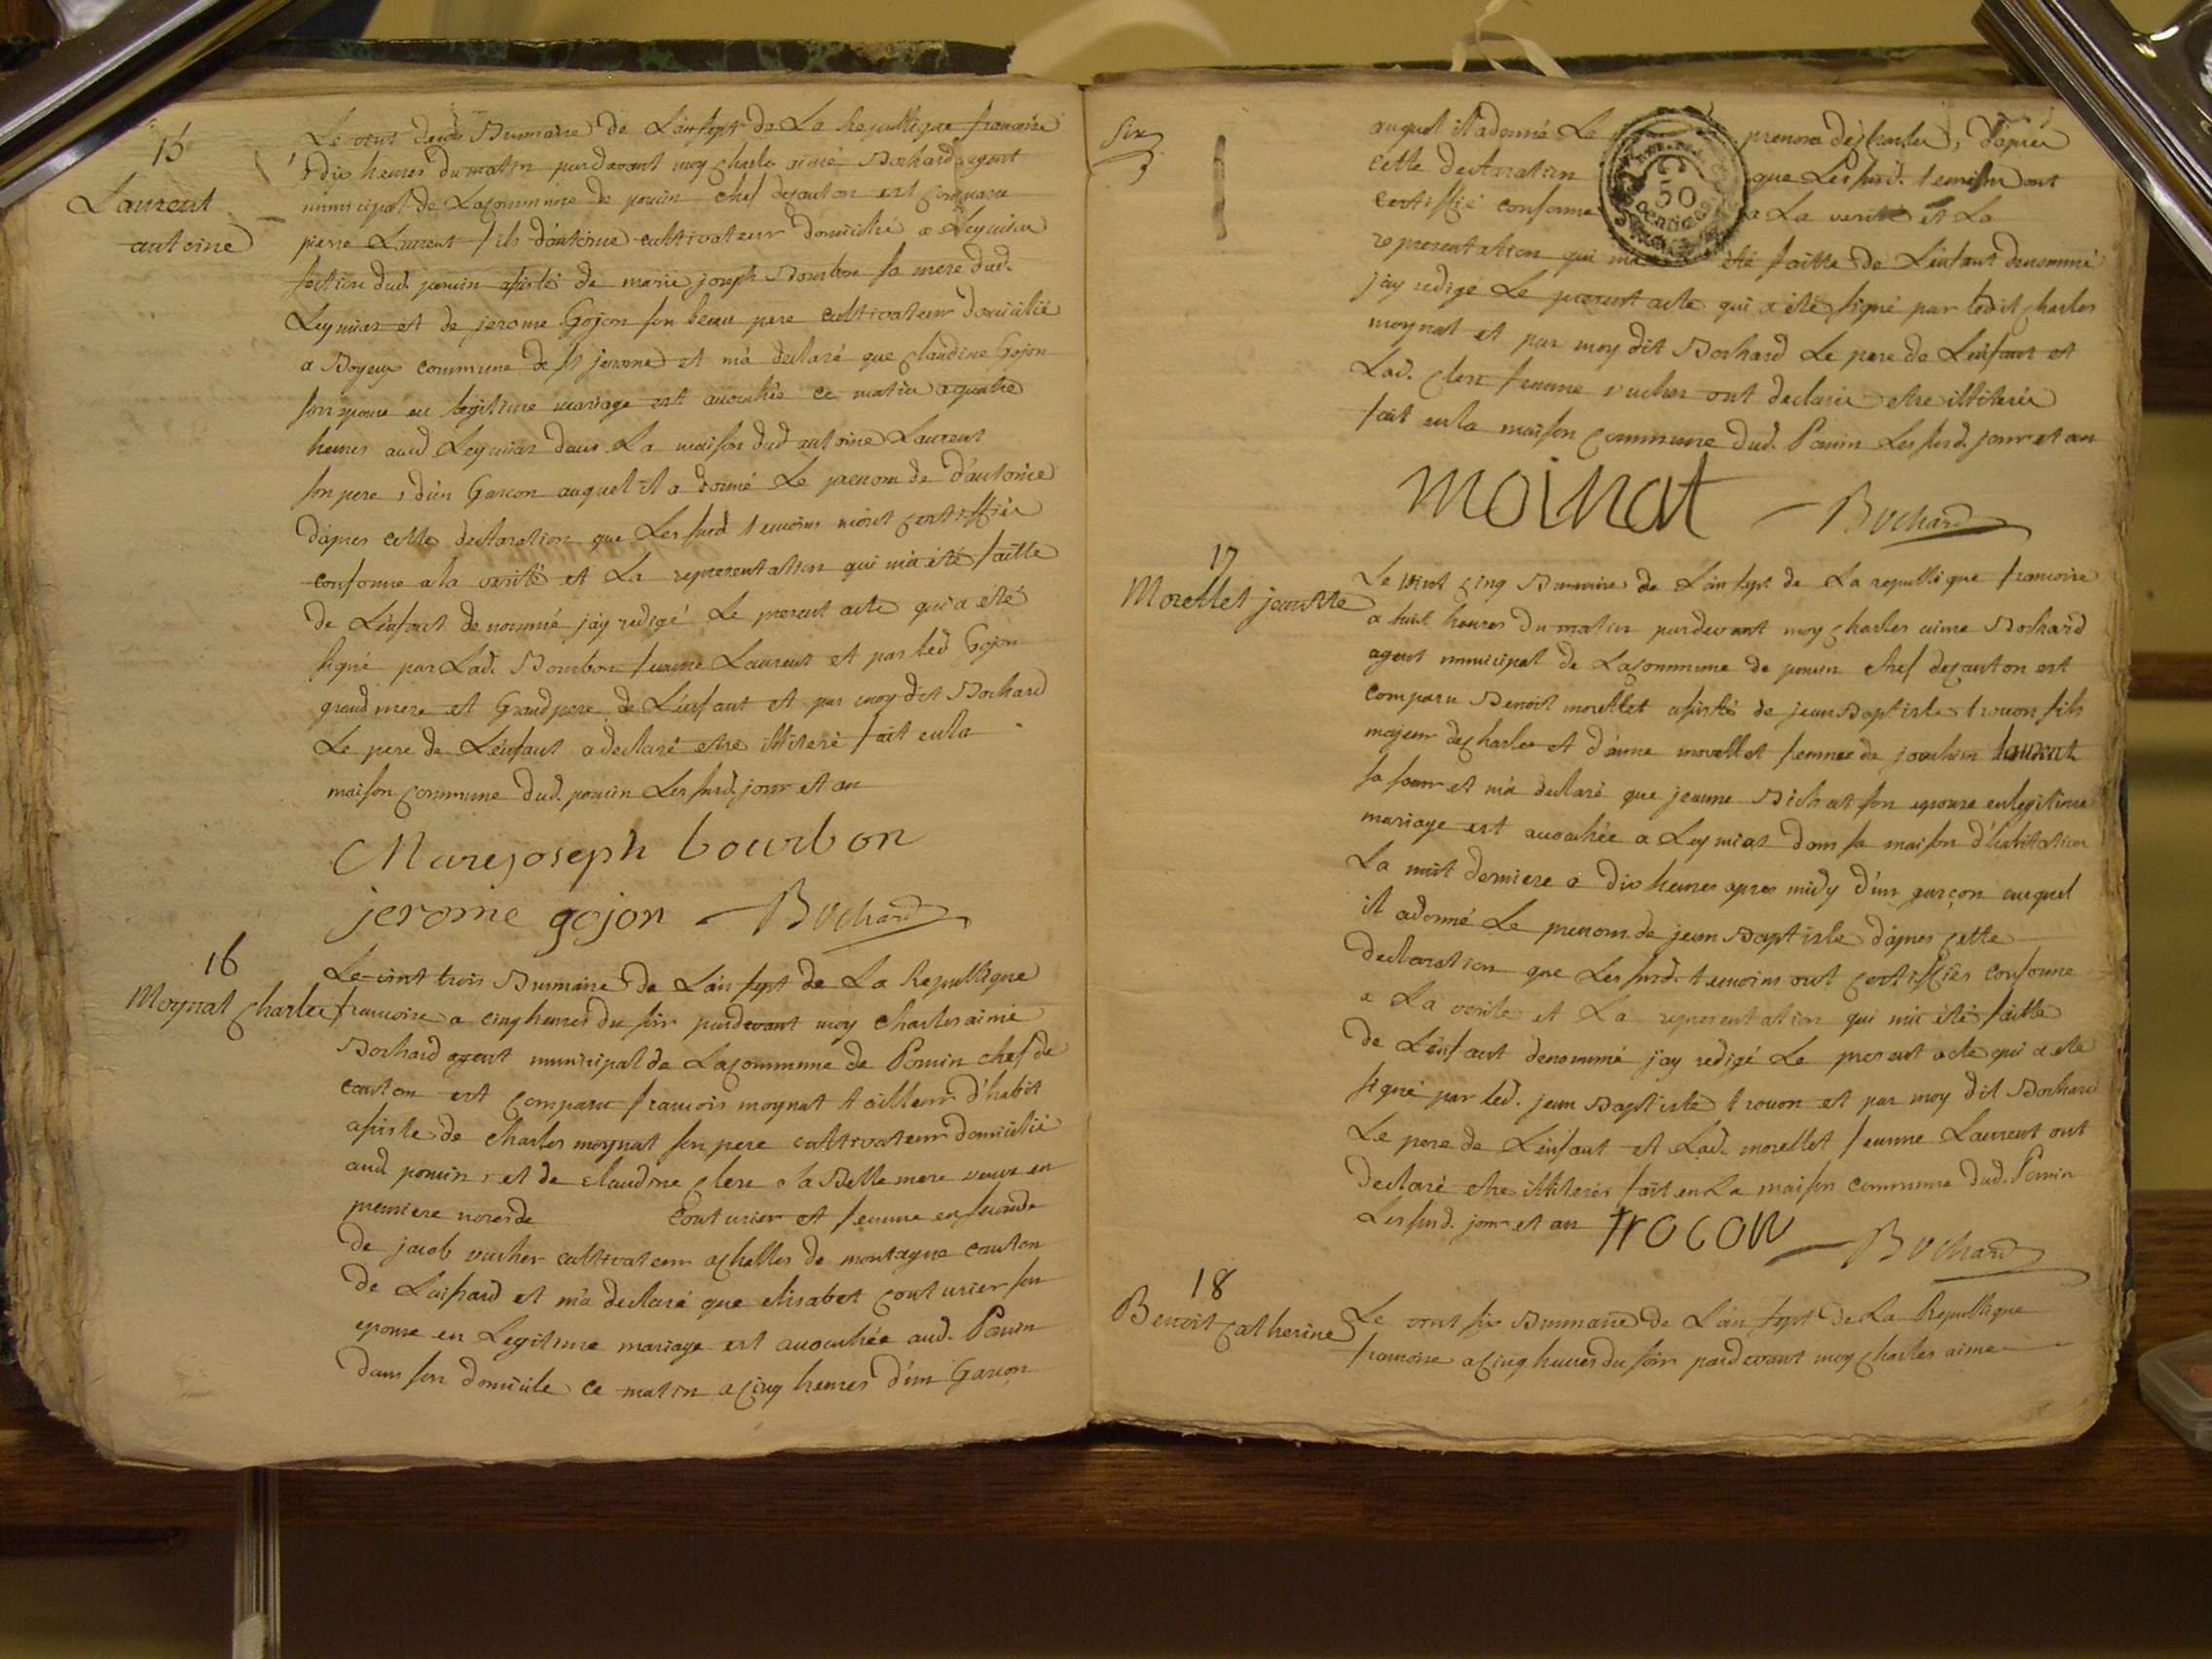 15
Laurent
antoine
Le vint deux Brumaire de L'an sept de La Republique francoise
a dix heures du matin pardevant moy Charle aimé Bochard agent
municipal de Lacommune de poncin chef decanton est comparu
pierre Laurent fils d'antoine cultivateur domicilié a Leymiat
section dud. poncin assisté de marie joseph Bourbon sa mere dud.
Leymiat et de jerome Gojon son beau pere cultivateur domicilié
a Boyeux commune de st jerome et m'a declaré que claudine Gojon
son epouse en legitime mariage est accouchée ce matin a quatre
heures aud Leymiat dans La maison dud antoine Laurent
son pere, d'un Garcon auquel il a donné Le prenom de d'antoine
d'apres cette declaration que Les susd temoins m'ont certiffiée
conforme a la verité et La representation qui m'a été faitte
de L'enfant denommé j'ay redigé Le present acte qui a été
signé par Lad. Bourbon femme Laurent et par led Gojon
grand mere et Grand pere de L'enfant et par moy dit Bochard
Le pere de L'enfant a declaré etre illiteré fait en la
maison commune dud. poncin Les susd. jour et an
Mariejoseph bourbon
jerome gojon Bochard
16
Moynat Charles
Le vint trois Brumaire de L'an sept de La Republique
francoise a cinq heures du soir pardevant moy Charles aimé
Bochard agent municipal de Lacommune de Poncin chef de
canton est comparu francois moynat tailleur d'habit
assisté de Charles moynat son pere cultivateur domicilié
aud poncin, et de claudine clerc sa Belle mere veuve en
premiere noces de couturier et femme en seconde
de jacob vucher cultivateur a challes de montagne canton
de Luisard et m'a declaré que elisabet couturier son
epouse en Legitime mariage est accouchée aud. Poncin
dans son domicile ce matin a cinq heures d'un Garcon
Six
50
centimes
auquel il a donné Le prenom de charles, d'apres
cette declaration que Les susd. temoins ont
certiffié conforme a La verité et La
representation qui m'a été faitte de L'enfant denommé
j'ay redigé Le present acte qui a été signé par ledit charles
moynat et par moy dit Bochard Le pere de L'enfant et
Lad. clerc femme vucher ont declarée etre illiterée
fait en la maison commune dud. Poncin Les susd. jour et an
moinat Bochard
17
Morellet jeanbte
Le vint cinq Brumaire de L'an sept de La republique francoise
a huit heures du matin pardevant moy charles aime Bochard
agent municipal de Lacommune de poncin chef decanton est
comparu Benoit morellet assisté de jean Baptiste trocon fils
majeur de charles et d'anne morellet femme de joachim Laurent
sa soeur et m'a declaré que jeanne Bichat son epouse en legitime
mariage est accouchée a Leymiat dans sa maison d'habitation
La nuit derniere a dix heures apres midy d'un garçon auquel
il a donné Le prenom de jean Baptiste d'apres cette
declaration que Les susd. temoins ont certiffiés conforme
a La verité et La representation qui m'a été faitte
de L'enfant denommé j'ay redigé Le present acte qui a ete
signé par led. jean Baptiste trocon et par moy dit Bochard
Le pere de L'enfant et Lad. morellet femme Laurent ont
declaré etre illiterés fait en La maison commune dud. Poncin
Les susd. jour et an trocon Bochard
18
Benoit catherine
Le vint six Brumaire de L'an sept de La Republique
francoise a cinq heures du soir pardevant moy charles aime